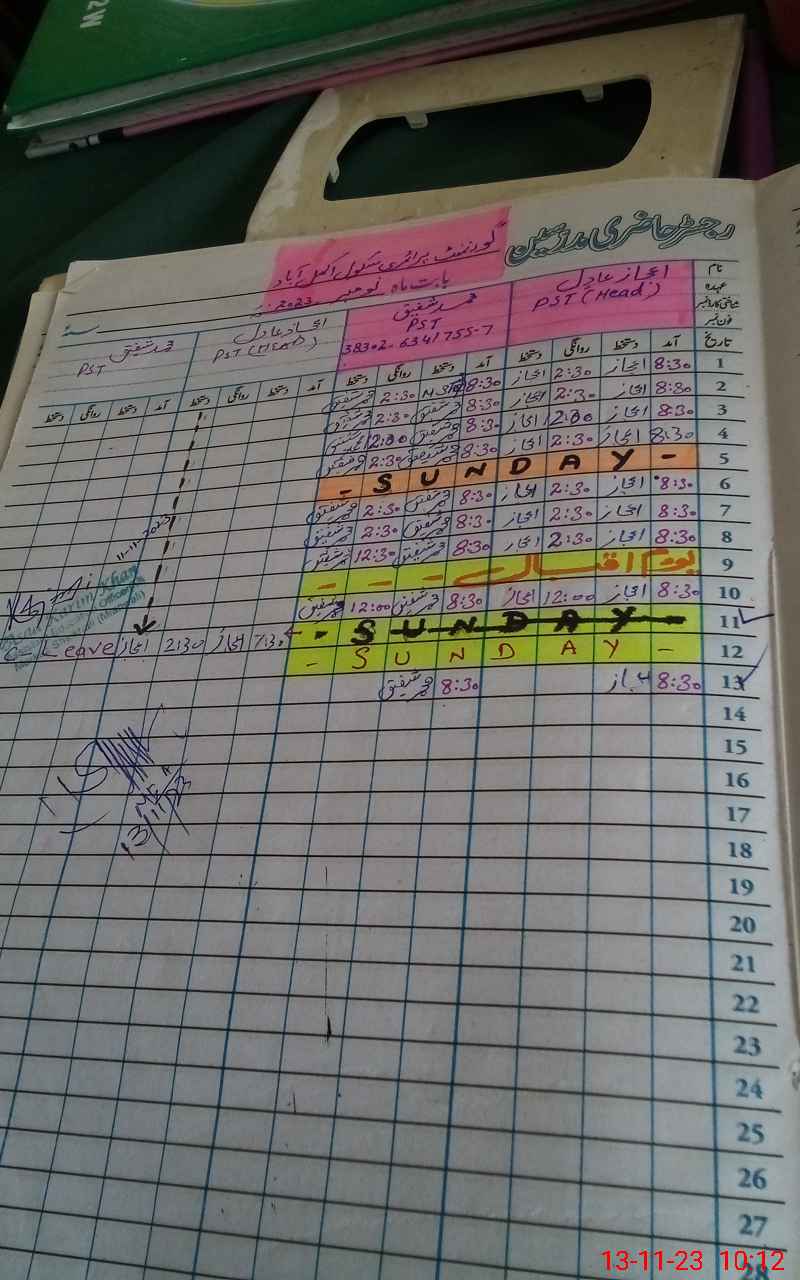 2W
رجسٹر حاضری مدرسین
گورنمنٹ پرائمری سکول
بابت ماہ نومبر 2023
نام
عہدہ
تاریخ
اعجاز عادل
PST (Head)
محمد شفیق
PST
38302-6341755-7
اعجاز عادل
PST (HEAD)
محمد شفیق
PST
آمد دستخط روانگی دستخط آمد دستخط روانگی دستخط آمد دستخط روانگی دستخط آمد دستخط روانگی دستخط
1 8:30 اعجاز 2:30 اعجاز 8:30 2:30 محمد شفیق
2 8:30 اعجاز 2:30 اعجاز 8:30 محمد شفیق 2:30 محمد شفیق
3 8:30 اعجاز 12:00 اعجاز 8:30 محمد شفیق 12:00 محمد شفیق
4 8:30 اعجاز 2:30 اعجاز 8:30 محمد شفیق 2:30 محمد شفیق
5 - SUNDAY -
6 8:30 اعجاز 2:30 اعجاز 8:30 محمد شفیق 2:30 محمد شفیق
7 8:30 اعجاز 2:30 اعجاز 8:30 محمد شفیق 2:30 محمد شفیق
8 8:30 اعجاز 2:30 اعجاز 8:30 محمد شفیق 12:30 محمد شفیق
9 یوم اقبال - - - -
10 8:30 اعجاز 12:00 اعجاز 8:30 محمد شفیق 12:00 محمد شفیق
11 - SUNDAY - 7:30 اعجاز 2:30 اعجاز Leave
12 - SUNDAY -
13 8:30 اعجاز 8:30 محمد شفیق
14
15
16
17
18
19
20
21
22
23
24
25
26
27
28
11-11-2023
13/11/23
13-11-23 10:12